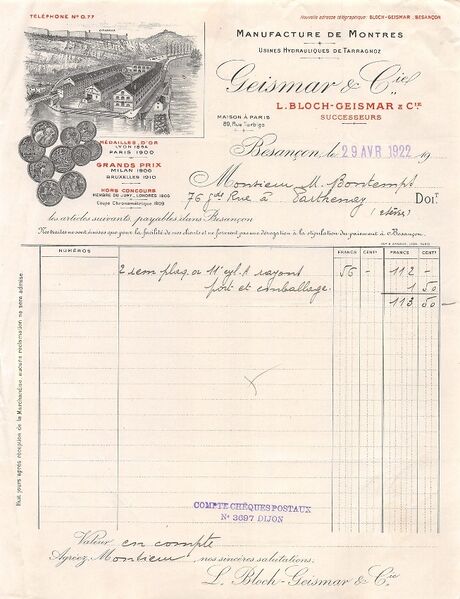 TÉLÉPHONE Nº 0.77
Nouvelle adresse télégraphique: BLOCH-GEISMAR, BESANÇON
CITADELLE
MANUFACTURE DE MONTRES
USINES HYDRAULIQUES DE TARRAGNOZ
Geismar & Cie
L. BLOCH-GEISMAR & CIE
SUCCESSEURS
MAISON À PARIS
89, Rue Turbigo
MÉDAILLES D'OR
LYON 1894
PARIS 1900
GRANDS PRIX
MILAN 1906
BRUXELLES 1910
HORS CONCOURS
MEMBRE DU JURY, LONDRES 1908
Coupe Chronométrique 1909
Besançon, le 29 AVR 1922 19
Monsieur M. Bontempt
76 gde Rue à Parthenay DOIT
les articles suivants, payables dans Besançon
Nos traites ne sont émises que pour la facilité de nos clients et ne forment pas une dérogation à la stipulation du paiement à Besançon.
NUMÉROS FRANCS CENTS FRANCS CENTS
2 rem plaq. or 11 cyl. A rayons 56 - 112 -
port et emballage. 1 50
113 50
Huit jours après réception de la Marchandise aucune réclamation ne sera admise
COMPTE CHÈQUES POSTAUX
Nº 3697 DIJON
Valeur en compte
Agréez, Monsieur, nos sincères salutations.
L. Bloch-Geismar & Cie